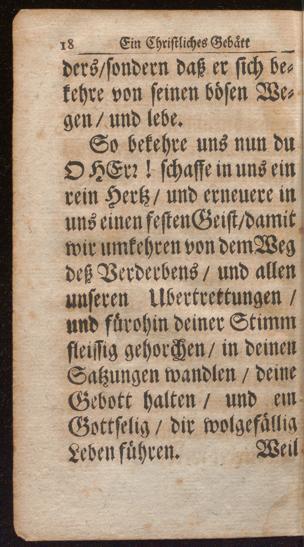 18 Ein Christliches Gebätt
ders/sondern daß er sich be-
kehre von seinen bösen We-
gen / und lebe.
So bekehre uns nun du
O HErr ! schaffe in uns ein
rein Hertz / und erneuere in
uns einen festen Geist/damit
wir umkehren von dem Weg
deß Verderbens / und allen
unseren Ubertrettungen /
und fürohin deiner Stimm
fleissig gehorchen / in deinen
Satzungen wandlen / deine
Gebott halten / und ein
Gottselig / dir wolgefällig
Leben führen. Weil